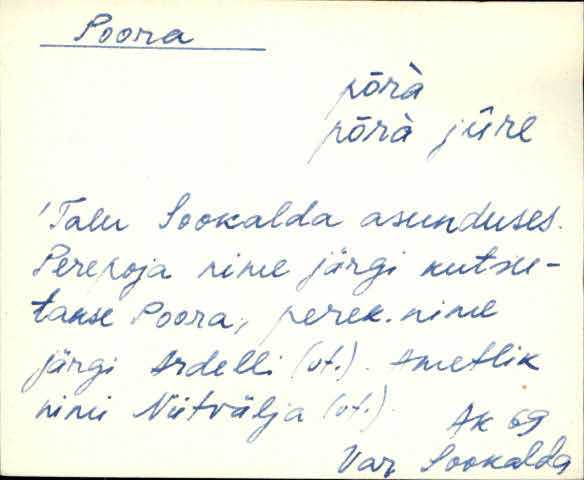 Poora
pōrà
pōrà jūre
'Talu Sookalda asunduses.
Perepoja nime järgi kutsu-
takse Poora, perek. nime
järgi Ardelli (vt.). Ametlik
nimi Niitvälja (vt.).
AK 69
Var Sookalda